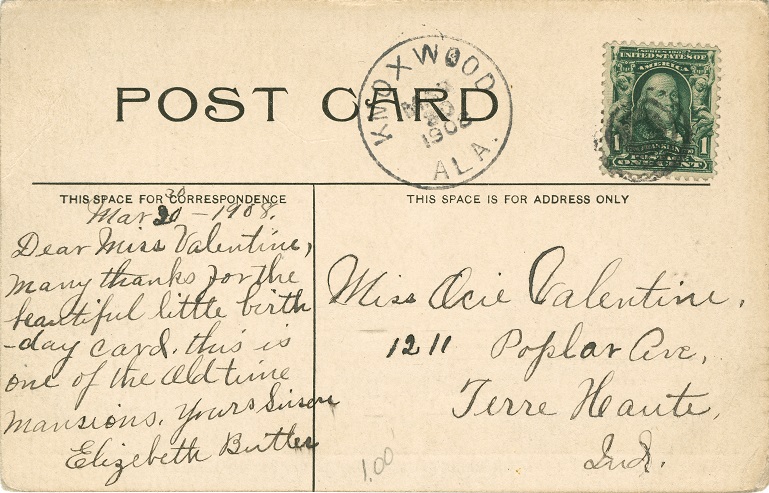 POST CARD
KNOXWOOD
MAR
30
1908
ALA.
SERIES 1902
UNITED STATES OF
AMERICA
1 FRANKLIN 1
POSTAGE
ONE CENT
THIS SPACE FOR CORRESPONDENCE
THIS SPACE IS FOR ADDRESS ONLY
30
Mar 20 - 1908.
Dear Miss Valentine,
many thanks for the
beautiful little birth
-day card. this is
one of the Old time
mansions. Yours Sincere
Elizebeth Butler
Miss Ocie Valentine,
1211 Poplar Ave,
Terre Haute,
Ind.
1.00